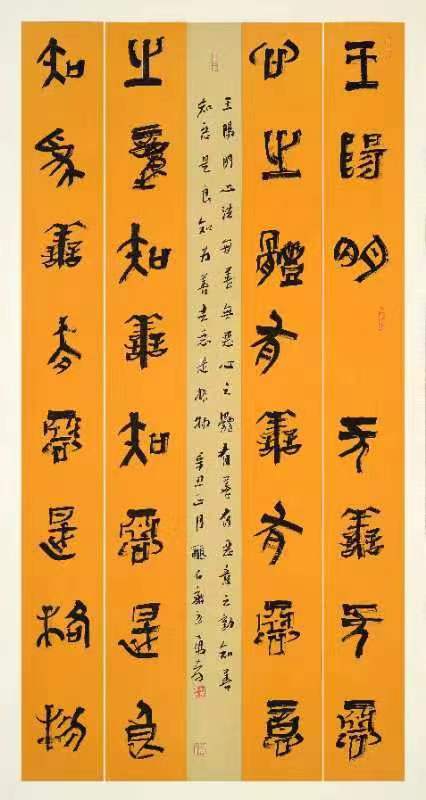 王陽明无善无惡
心之體有善有惡意
王陽明心法無善無惡心之體有善有惡意之動知善
知惡是良知為善去惡是格物辛丑正月
之動知善知惡是良
知為善去惡是格物